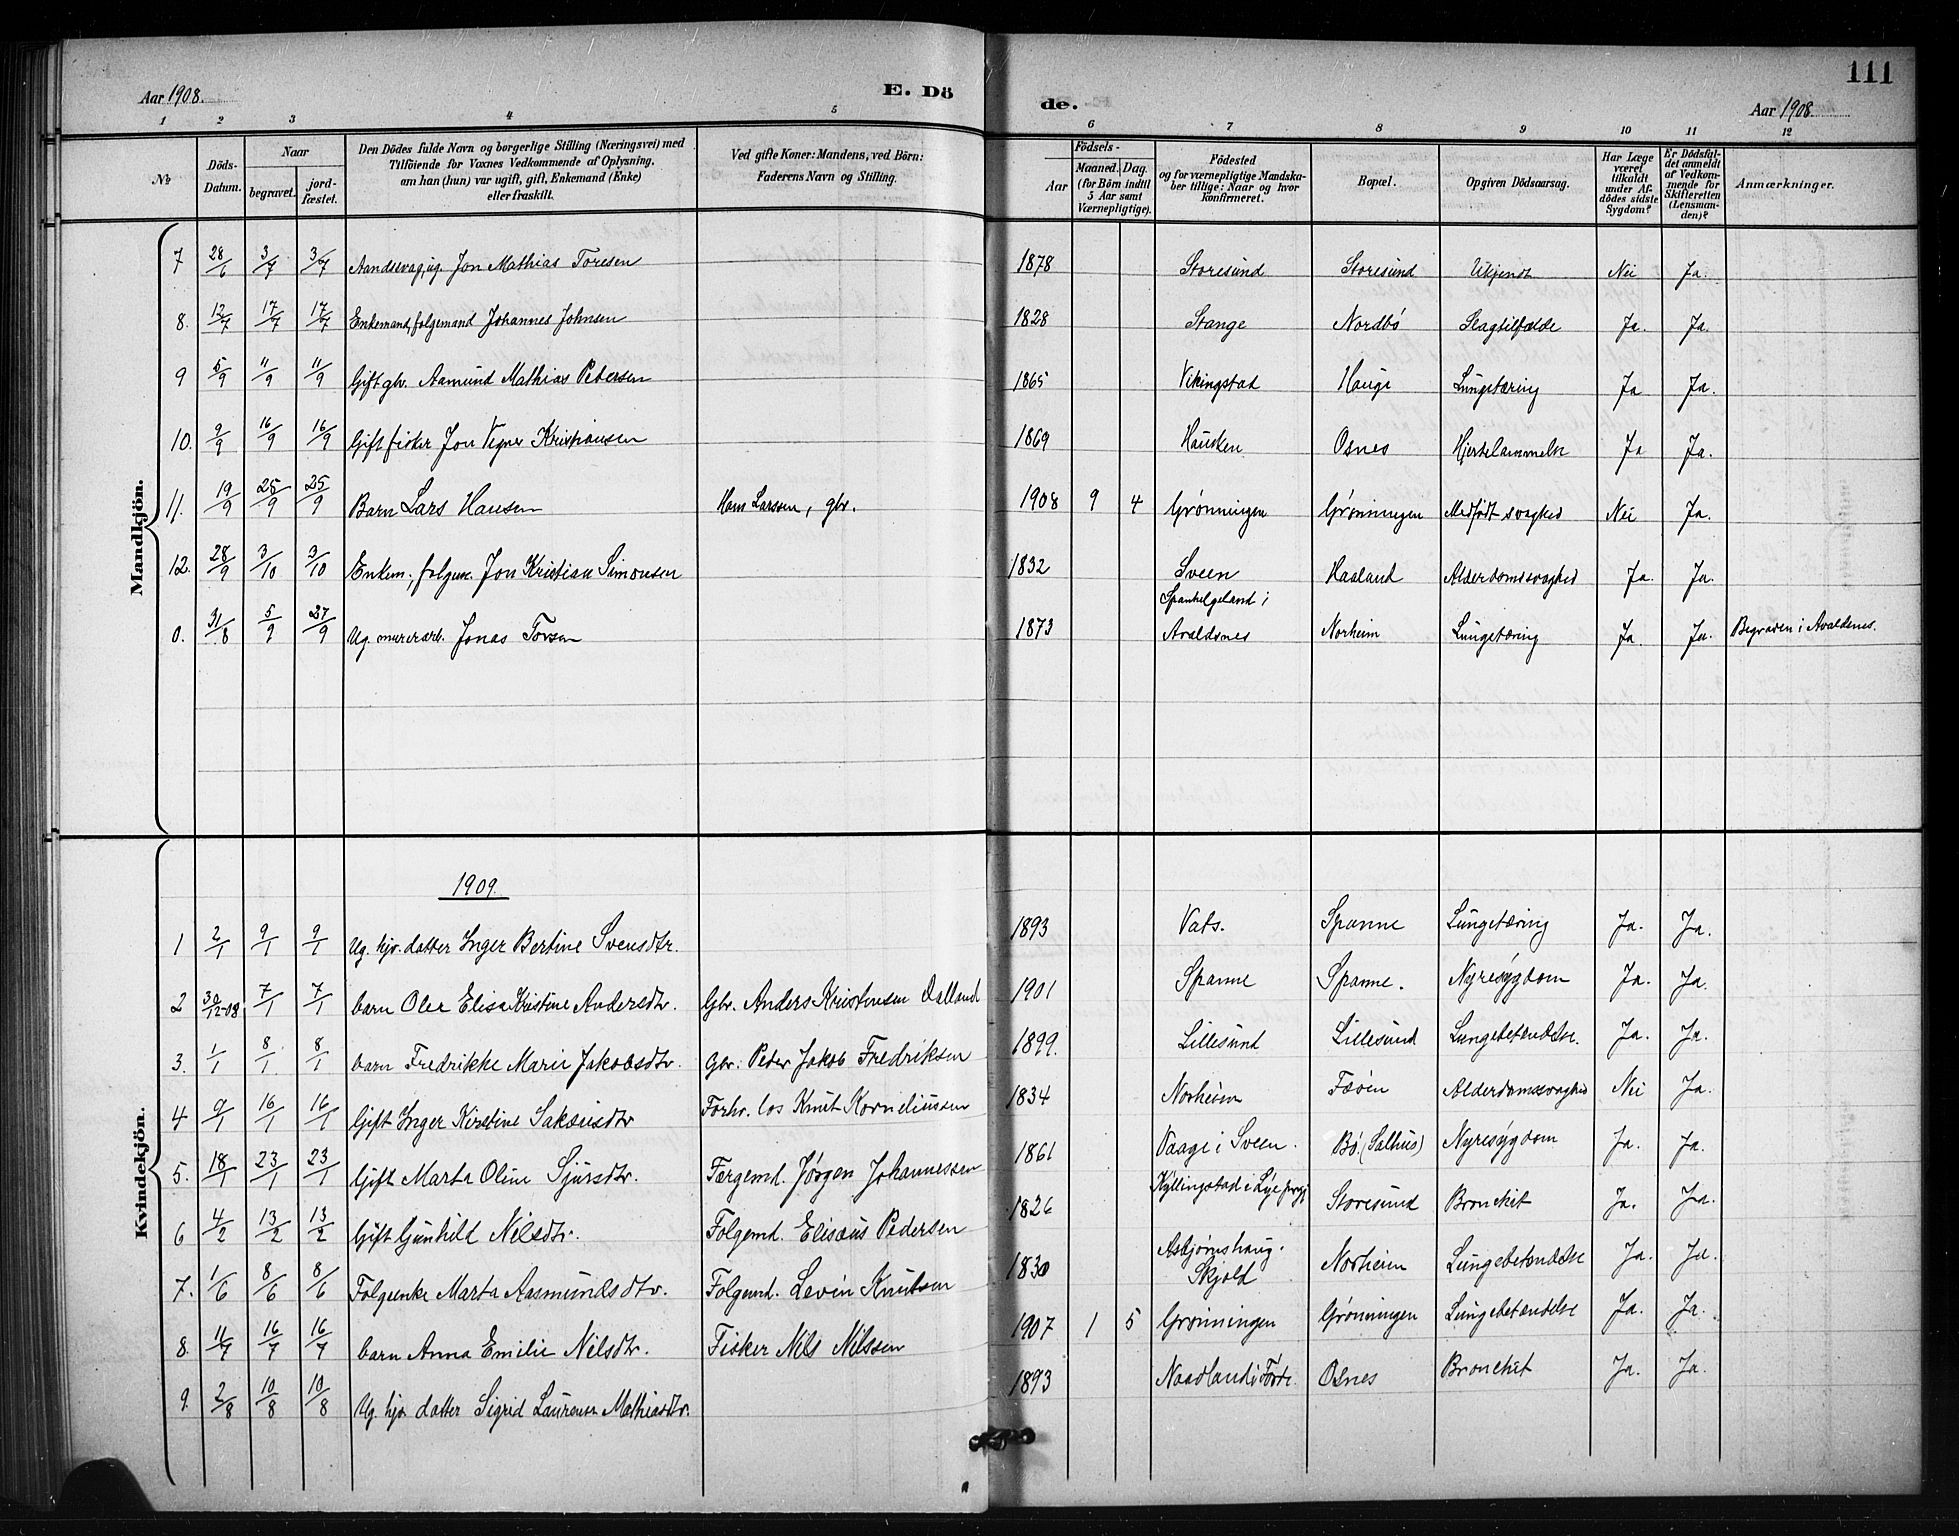 111
Aar 1908. E. Dö de. Aar 1908.
1 2 3 4 5 6 7 8 9 10 11 12
№ Döds-Datum. Naar begravet. jord-fæstet. Den Dödes fulde Navn og borgerlige Stilling (Næringsvei) med Tilföiende for Voxnes Vedkommende af Oplysning. om han (hun) var ugift, gift, Enkemand (Enke) eller fraskilt. Ved gifte Koner: Mandens, ved Börn: Faderens Navn og Stilling. Födsels- Aar Maaned. Dag. (for Börn indtil 5 Aar samt Værnepligtige). Födested og for værnepligtige Mandskaber tillige: Naar og hvor konfirmeret. Bopæl. Opgiven Dödsaarsag. Har Læge været tilkaldt under Afdödes sidste Sygdom? Er Dödsfaldet anmeldt af Vedkommende for Skifteretten (Lensmanden)? Anmærkninger.
Mandkjön.
7 28/6 3/7 3/7 Aandssvag, ug. Jon Mathias Toresen 1878 Storesund Storesund Ukjendt Nei Ja.
8. 12/7 17/7 17/7 Enkemand, folgemand Johannes Johnsen 1828 Stange Nordbø Slagtilfælde Ja. Ja.
9 5/9 11/9 11/9 Gift gbr. Aamund Mathias Petersen 1865 Vikingstad Hauge Lungetæring Ja Ja.
10. 9/9 16/9 16/9 Gift fisker Jon Vigner Kristiansen 1869 Hausken Osnes Hjertelammelse Ja Ja.
11. 19/9 25/9 25/9 Barn Lars Hansen Hans Larssen, gbr. 1908 9 4 Grønningen Grønningen Medfødt svaghed Nei Ja.
12. 28/9 3/10 3/10 Enkem., folgem. Jon Kristian Simonsen 1832 Sveen Haaland Alderdomssvaghed Ja. Ja.
0. 31/8 5/9 27/9 Ug. murerarb. Jonas Torsen 1873 Spanhelgeland i Avaldsnes Norheim Lungetæring Ja. Ja. Begraven i Avaldsnes.
Kvindekjön.
1909.
1 2/1 9/1 9/1 Ug. hjv. datter Inger Bertine Svensdtr. 1893 Vats. Spanne Lungetæring Ja. Ja.
2 30/12-08 7/1 7/1 barn Olee Elisa Kristine Andersdtr. Gbr. Anders Kristensen Dalland 1901 Spanne Spanne. Nyresygdom Ja. Ja.
3. 1/1 8/1 8/1 barn Fredrikke Marie Jakobsdtr. Gbr. Peder Jakob Fredriksen 1899. Lillesund Lillesund Lungebetændelse. Ja. Ja.
4 9/1 16/1 16/1 Gift Inger Kirstine Sakariasdtr Forhv. los Knut Korneliussen 1834 Norheim Fæøen Alderdomssvaghed Nei Ja.
5. 18/1 23/1 23/1 Gift Marta Oline Sjursdtr. Færgemd. Jørgen Johannessen 1861 Vaage i Sveen. Bø. (Salhus) Nyresygdom Ja. Ja.
6 4/2 13/2 13/2 Gift Gunhild Nilsdtr. Folgemd. Elisæus Pedersen 1826 Kyllingstad i Lye prgj Storesund Bronchit Ja. Ja.
7. 1/6 8/6 8/6 Folgeenke Marta Aasmundsdtr. Folgemd. Levin Knutsen 1830 Asbjørnshaug. Skjold Norheim Lungebetændelse Ja. Ja.
8. 11/7 16/7 16/7 barn Anna Emilie Nilsdtr. Fisker Nils Nilssen 1907 1 5 Grønningen Grønningen Lungebetændelse Ja. Ja.
9. 2/8 10/8 10/8 Ug. hjv. datter Sigrid Laurense Mathiasdtr. 1893 Naadland i Førde. Osnes Bronchit Ja. Ja.